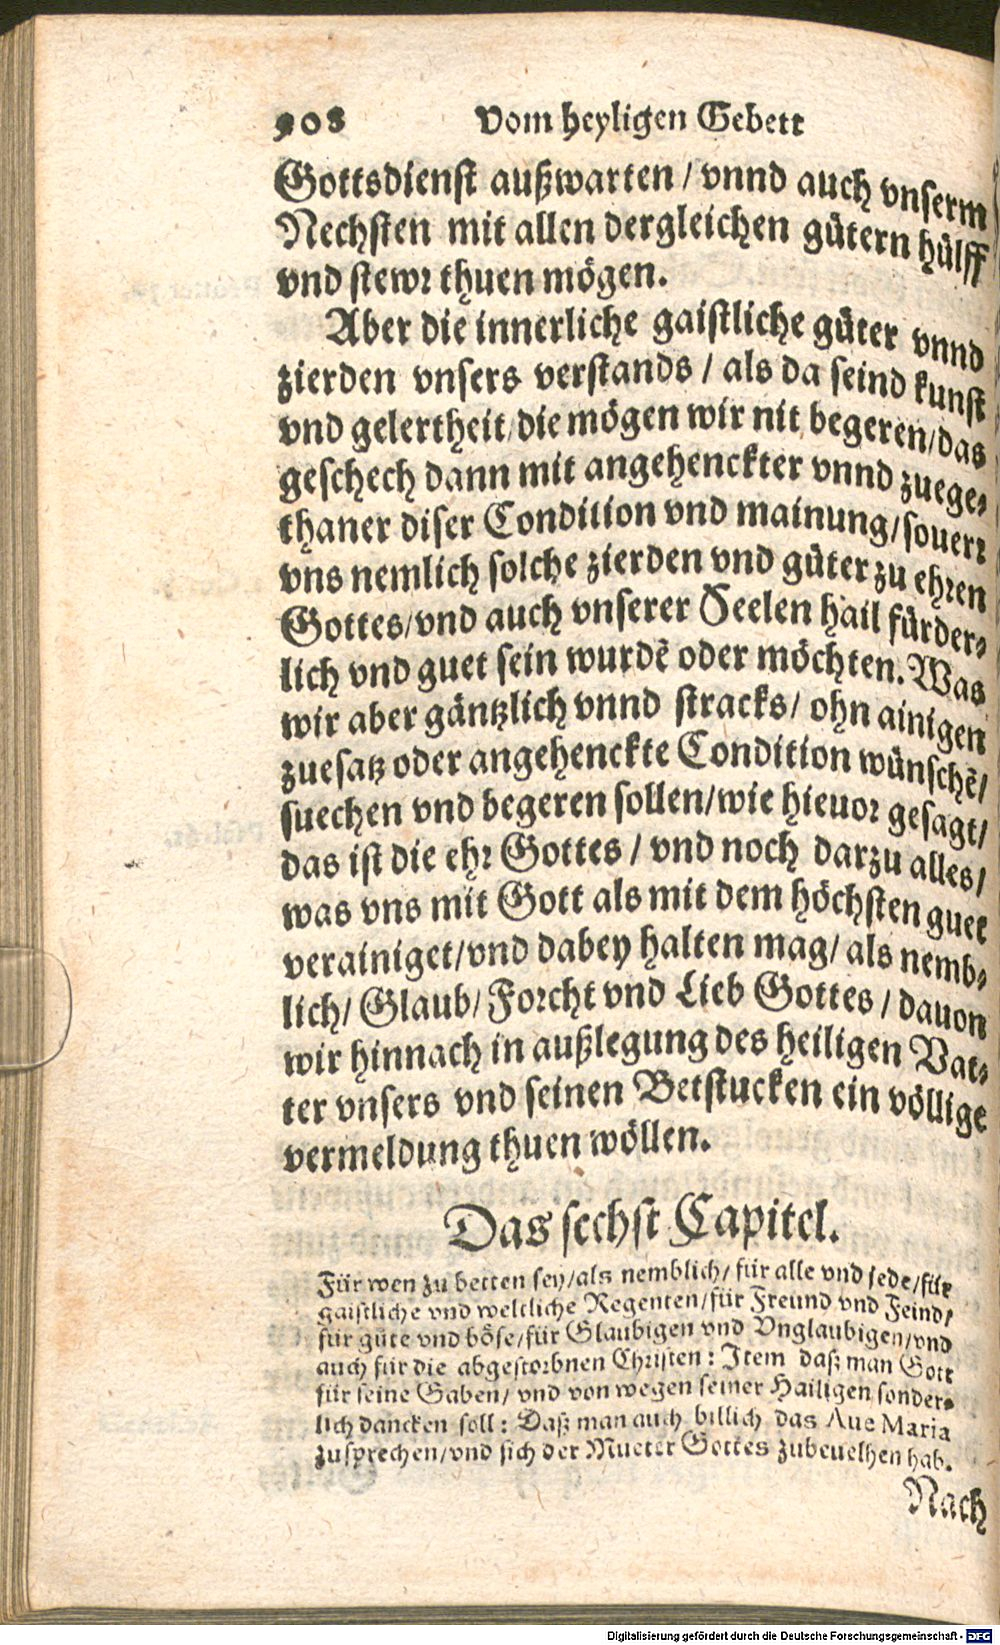 908 Vom heyligen Gebett
Gottsdienst außwarten / vnnd auch vnserm
Nechsten mit allen dergleichen gütern hülff
vnd stewr thuen mögen.
Aber die innerliche gaistliche güter vnnd
zierden vnsers verstands / als da seind kunst
vnd gelertheit/die mögen wir nit begeren/das
geschech dann mit angehenckter vnnd zuege-
thaner diser Condition vnd mainung/souerr
vns nemlich solche zierden vnd güter zu ehren
Gottes/vnd auch vnserer Seelen hail fürder-
lich vnd guet sein wurdẽ oder möchten. Was
wir aber gäntzlich vnnd stracks/ ohn ainigen
zuesatz oder angehenckte Condition wünschẽ/
suechen vnd begeren sollen/wie hieuor gesagt/
das ist die ehr Gottes / vnd noch darzu alles/
was vns mit Gott als mit dem höchsten guet
verainiget/vnd dabey halten mag/ als nemb-
lich/ Glaub/ Forcht vnd Lieb Gottes / dauon
wir hinnach in außlegung des heiligen Vat-
ter vnsers vnd seinen Betstucken ein völlige
vermeldung thuen wöllen.
Das sechst Capitel.
Für wen zu betten sey/als nemblich/ für alle vnd jede/für
gaistliche vnd weltliche Regenten/für Freund vnd Feind/
für güte vnd böse/für Glaubigen vnd Vnglaubigen/vnd
auch für die abgestorbnen Christen: Item daß man Gott
für seine Gaben/ vnd von wegen seiner Hailigen sonder-
lich dancken soll: Daß man auch billich das Aue Maria
zusprechen/vnd sich der Mueter Gottes zubeuelhen hab.
Nach
Digitalisierung gefördert durch die Deutsche Forschungsgemeinschaft - DFG